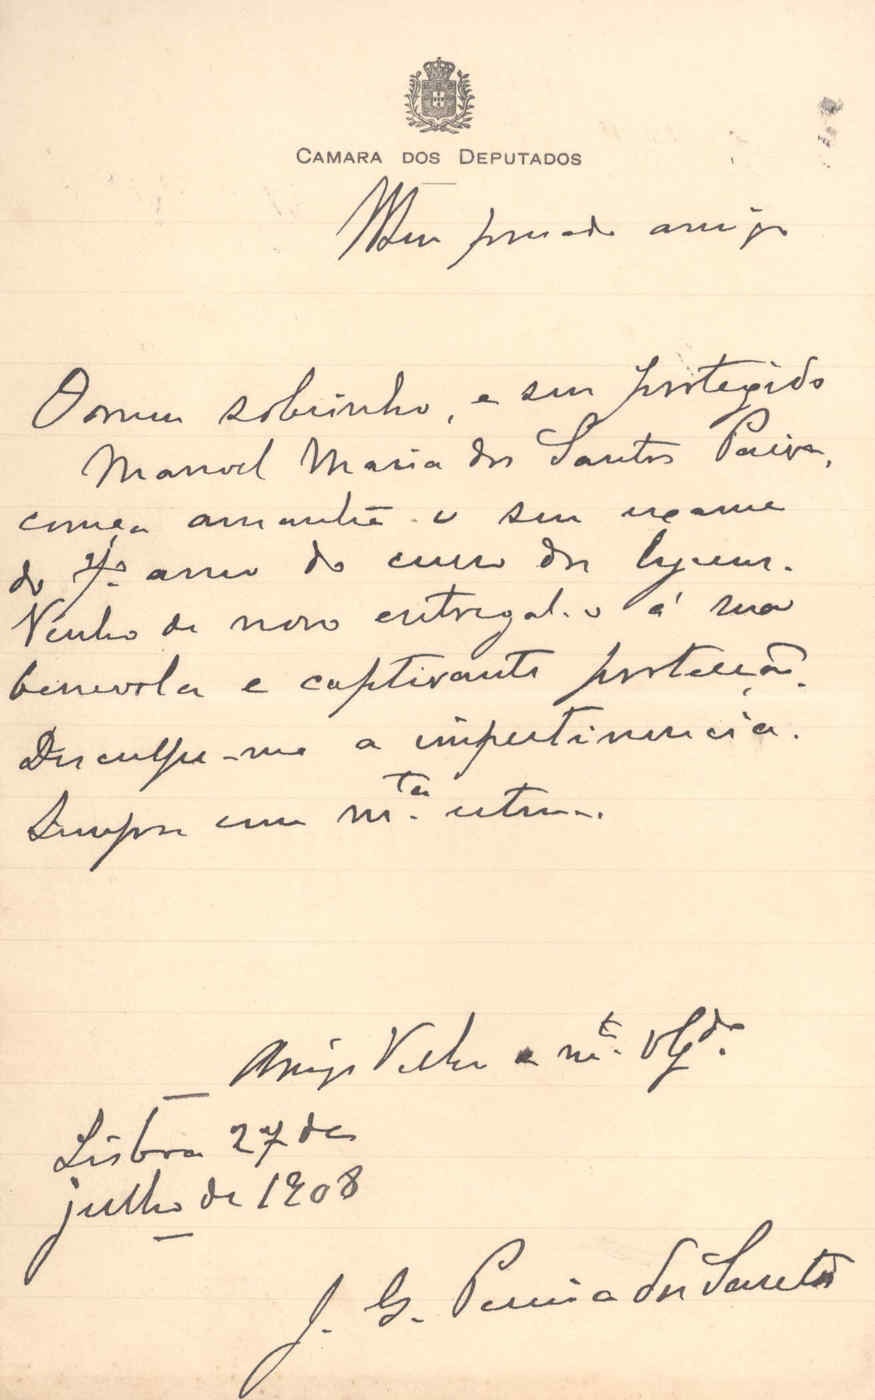 CAMARA DOS DEPUTADOS
Meu presado amigo
O meu sobrinho, e seu protegido
Manoel Maria dos Santos Paiva,
começa amanhã o seu exame
do 7º anno do curso dos lyceus.
Venho de novo entregal-o á sua
benevola e captivante protecção.
Desculpe-me a impertinencia.
Sempre com m.ta estima.
Amigo Velho e m.t obg.do
Lisboa 27 de
julho de 1908
J. G. Pereira dos Santos